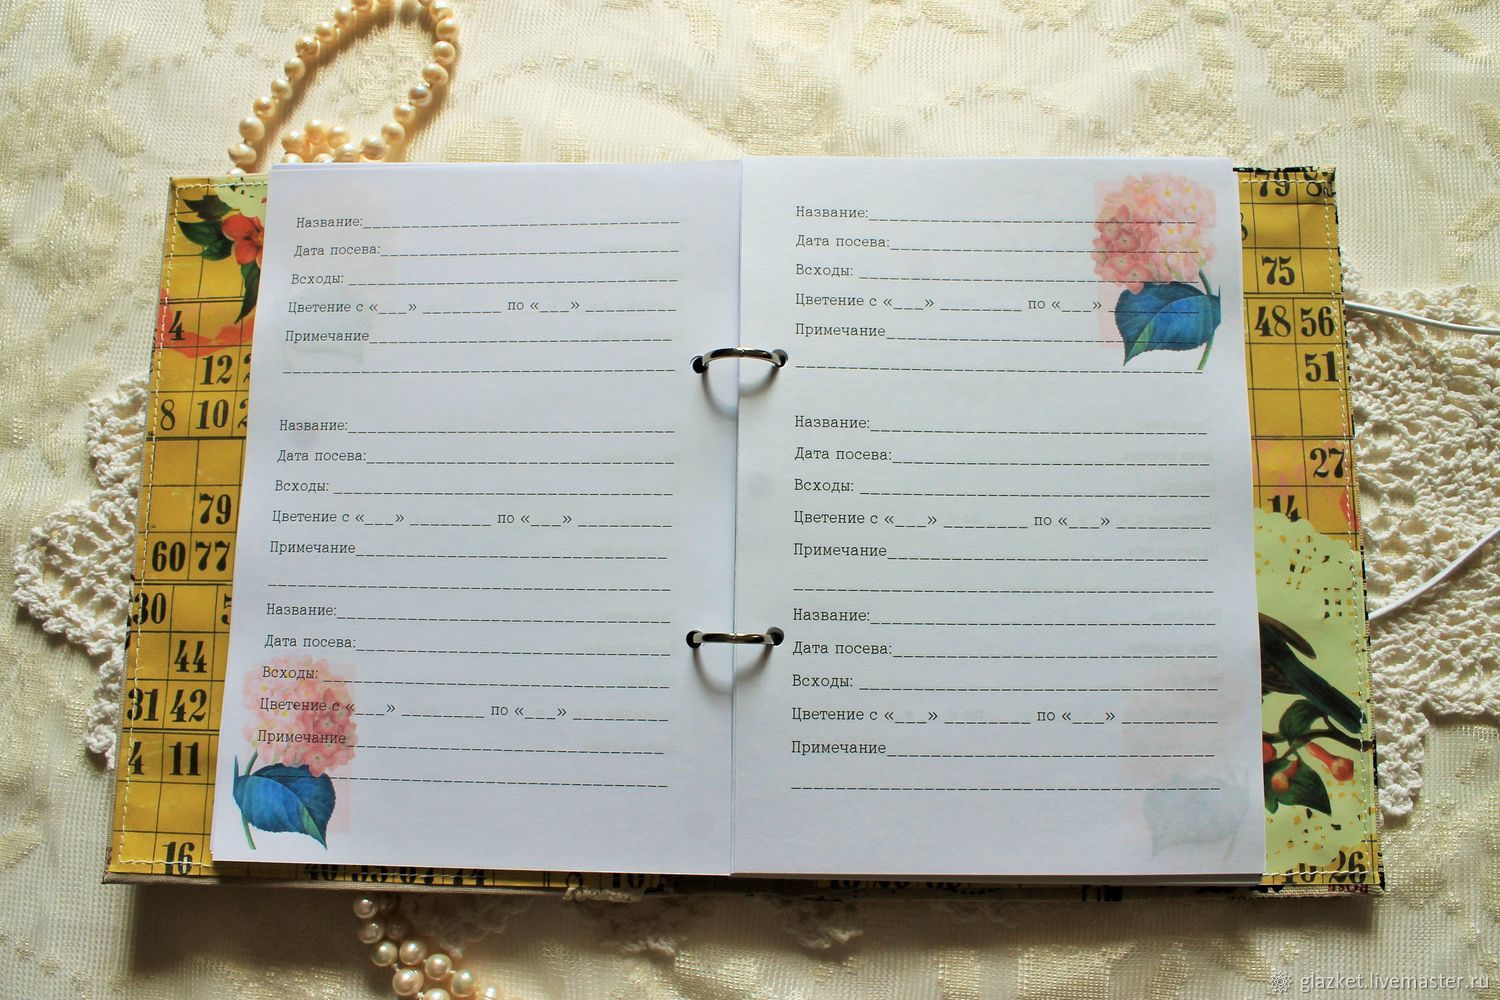 Название:
Дата посева:
Всходы:
Цветение с «___» _________ по «___» ___________
Примечание
Название:
Дата посева:
Всходы:
Цветение с «___» _________ по «___» ___________
Примечание
Название:
Дата посева:
Всходы:
Цветение с «___» _________ по «___» ___________
Примечание
Название:
Дата посева:
Всходы:
Цветение с «___» _________ по «___» ___________
Примечание
Название:
Дата посева:
Всходы:
Цветение с «___» _________ по «___» ___________
Примечание
Название:
Дата посева:
Всходы:
Цветение с «___» _________ по «___» ___________
Примечание
4
12
8 10
79
60 77
30
44
31 42
4 11
16
79
75
48 56
51
27
14
26
glazket.livemaster.ru